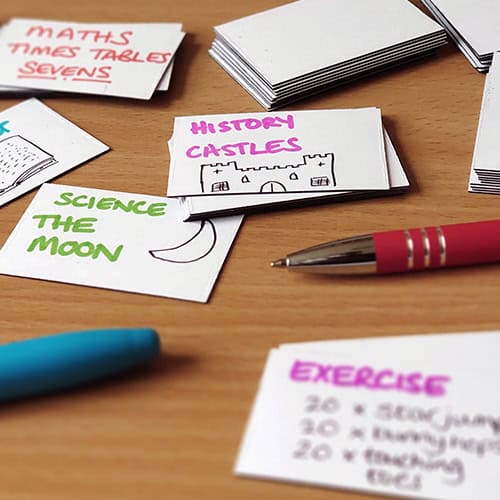 MATHS
TIMES TABLES
SEVENS
HISTORY
CASTLES
SCIENCE
THE
MOON
EXERCISE
20 x star jump
20 x bunny hops
20 x touching
toes